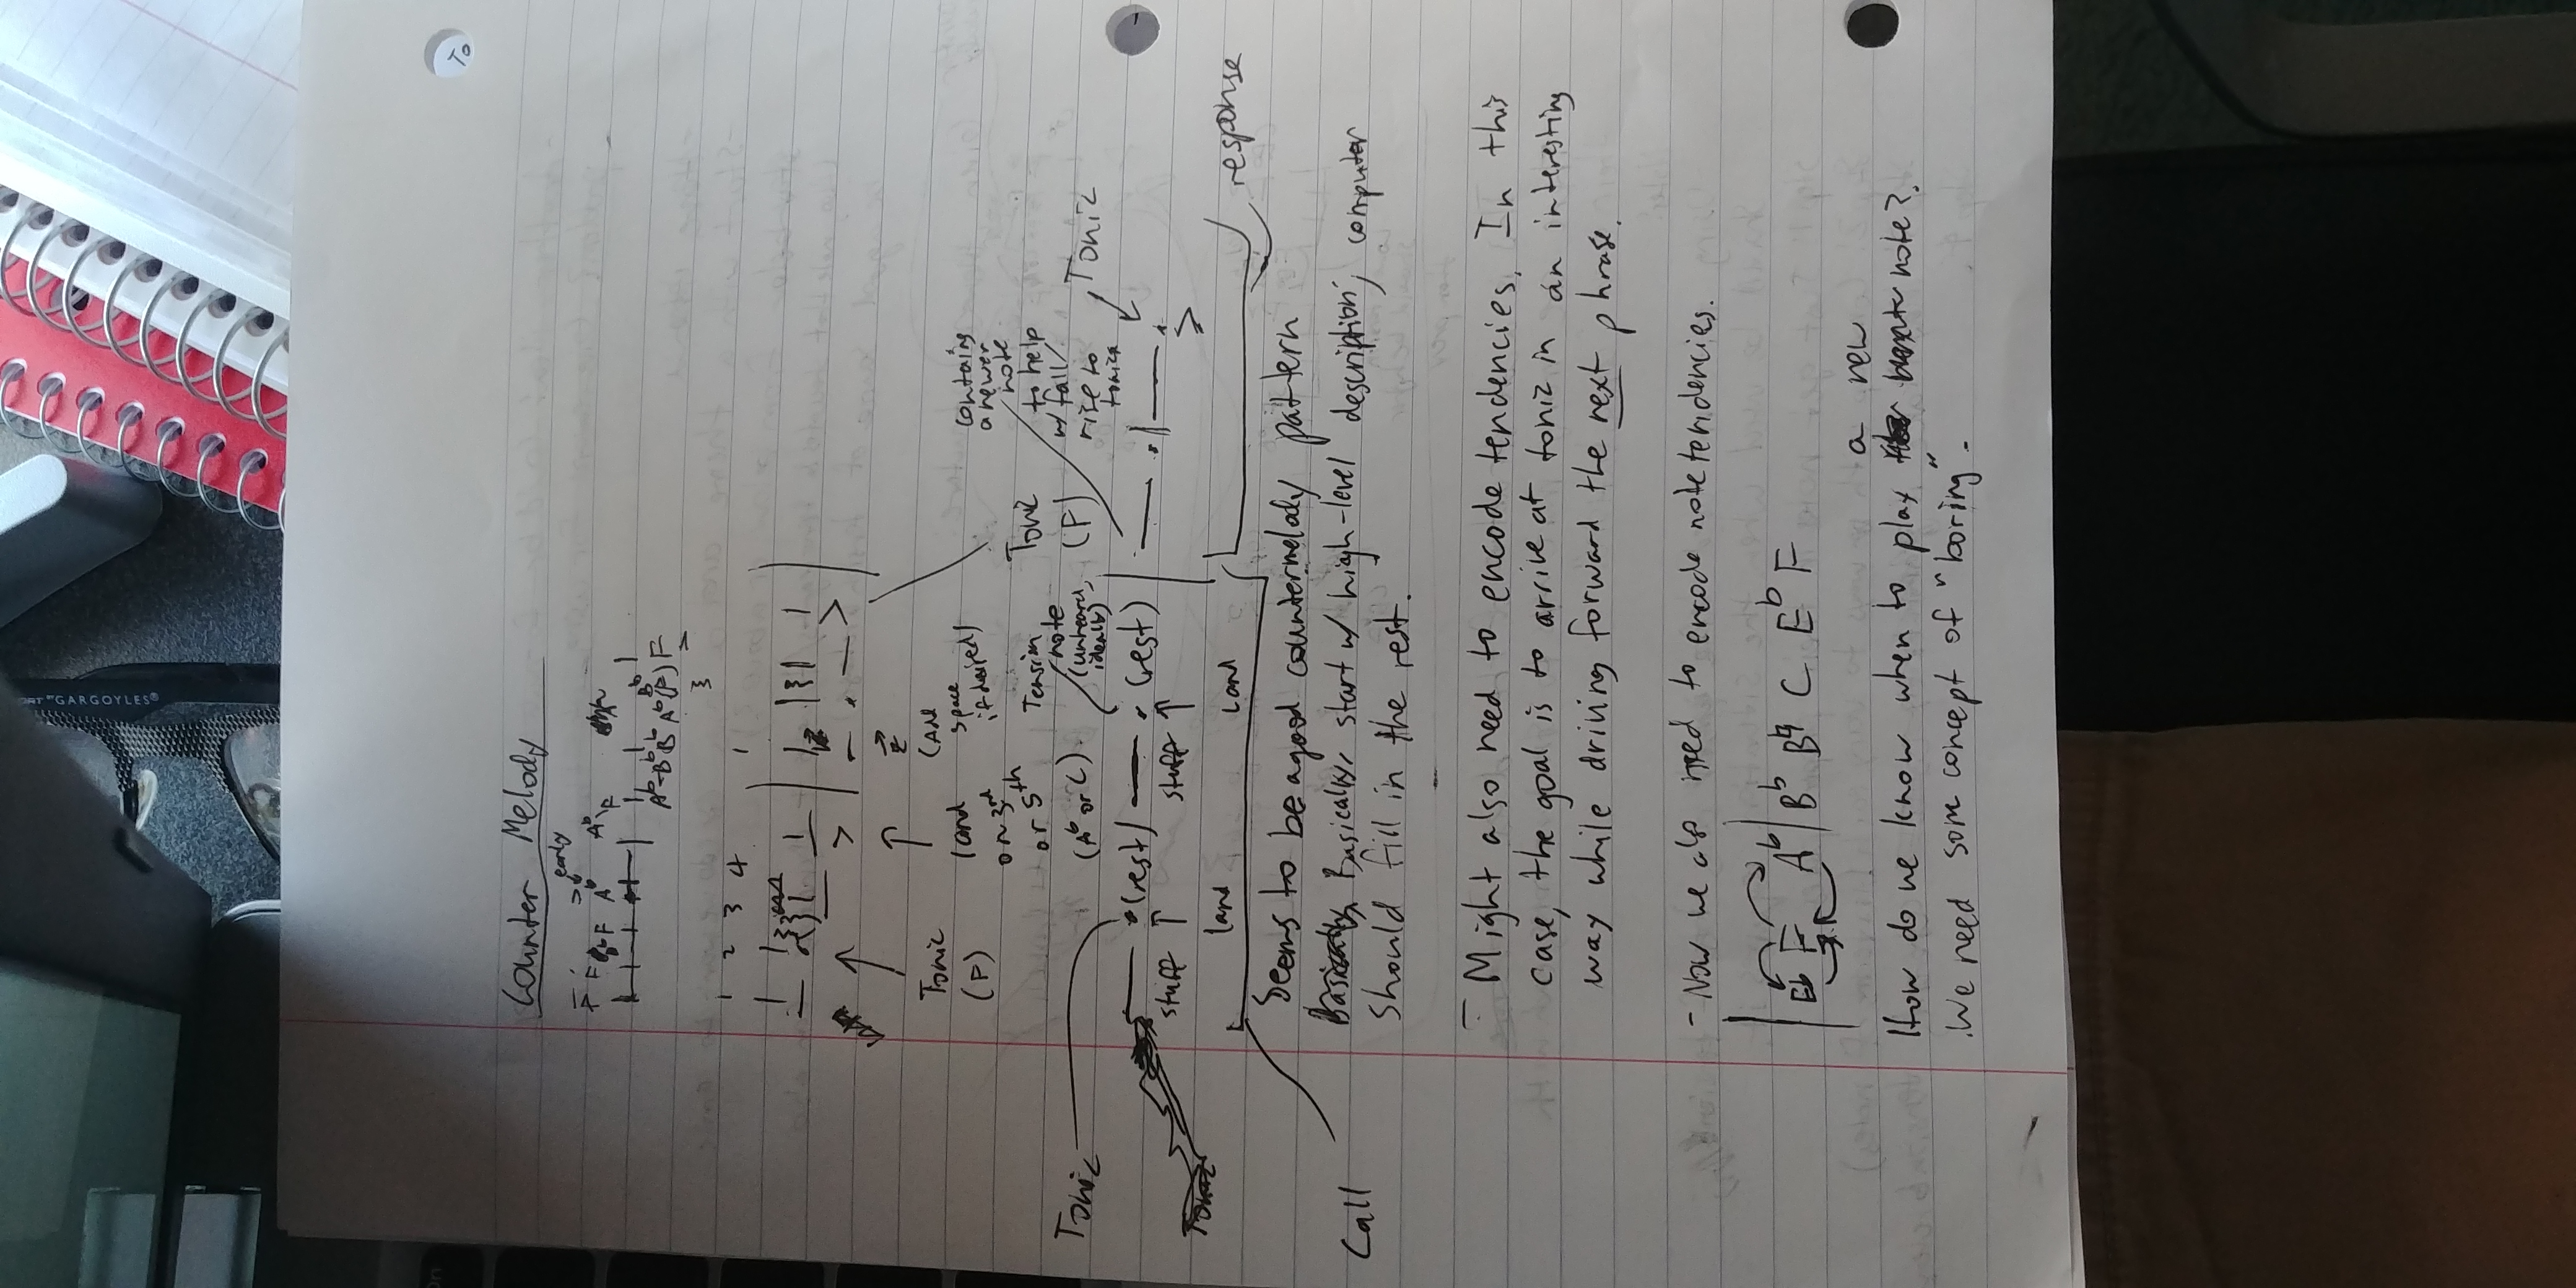 "GARGOYLES®
On
To
Counter Melody
early
F F F A♭ A♭ F
A♭ - B♭ B♭ A♭ (F) F
B♭
>
1 2 3 4 1
>
>
Tonic
(F)
land
on 3rd
or 5th
(A♭ or C)
(Add
space
if desired)
Tension
note
(unheard,
ideally)
Tonic
(F)
contains
a newer
note
to help
w/ fall/
rise to
tonic
Tonic
Tonic
(rest) (rest)
stuff stuff
land Land
>
response
Call
Seems to be a good countermelody pattern
Basically, Basically, start w/ high-level description; computer
should fill in the rest.
- Might also need to encode tendencies. In this
case, the goal is to arrive at tonic in an interesting
way while driving forward the next phrase.
- Now we also need to encode note tendencies.
Eb F A♭ | B♭ B♮ C E♭ F
How do we know when to play a new note?
We need some concept of "boring".